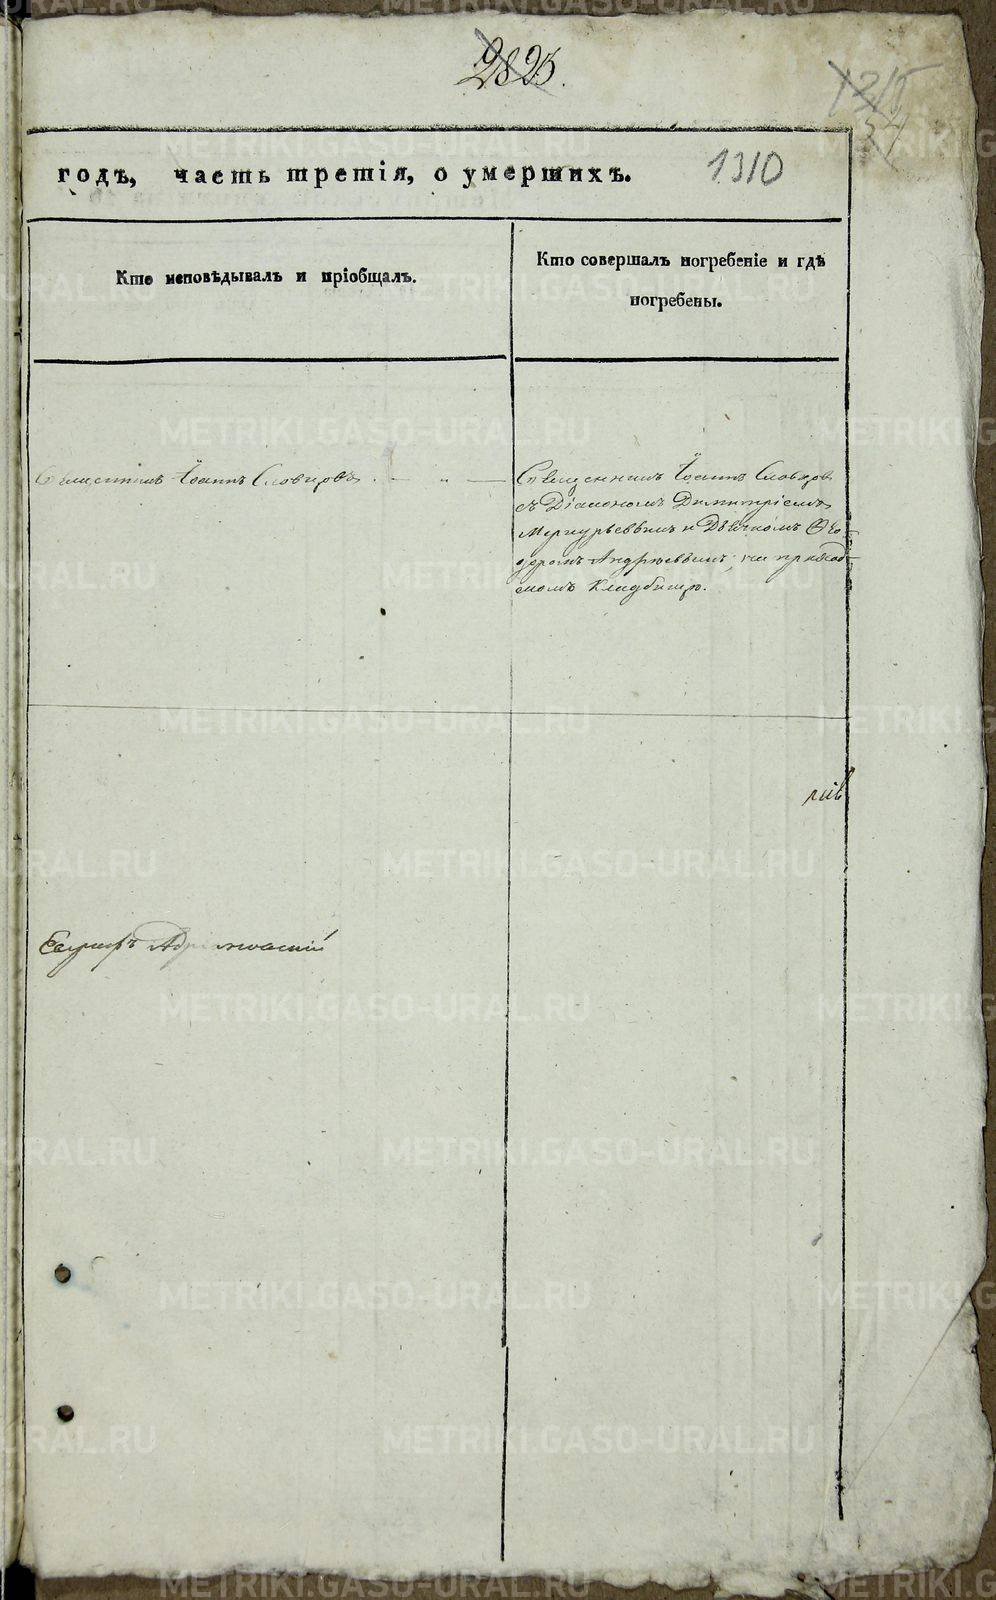 2825.
1215
54
годъ, часть третія, о умершихъ. 1310
Кто исповѣдывалъ и пріобщалъ.
Кто совершалъ погребеніе и гдѣ
погребены.
Священникъ Іоаннъ Словцовъ
Священникъ Іоаннъ Словцов
съ Діакономъ Димитріемъ
Меркурьевымъ и Дьячкомъ Ѳео-
доромъ Андреевымъ, на приход-
скомъ кладбищѣ.
METRIKI.GASO-URAL.RU